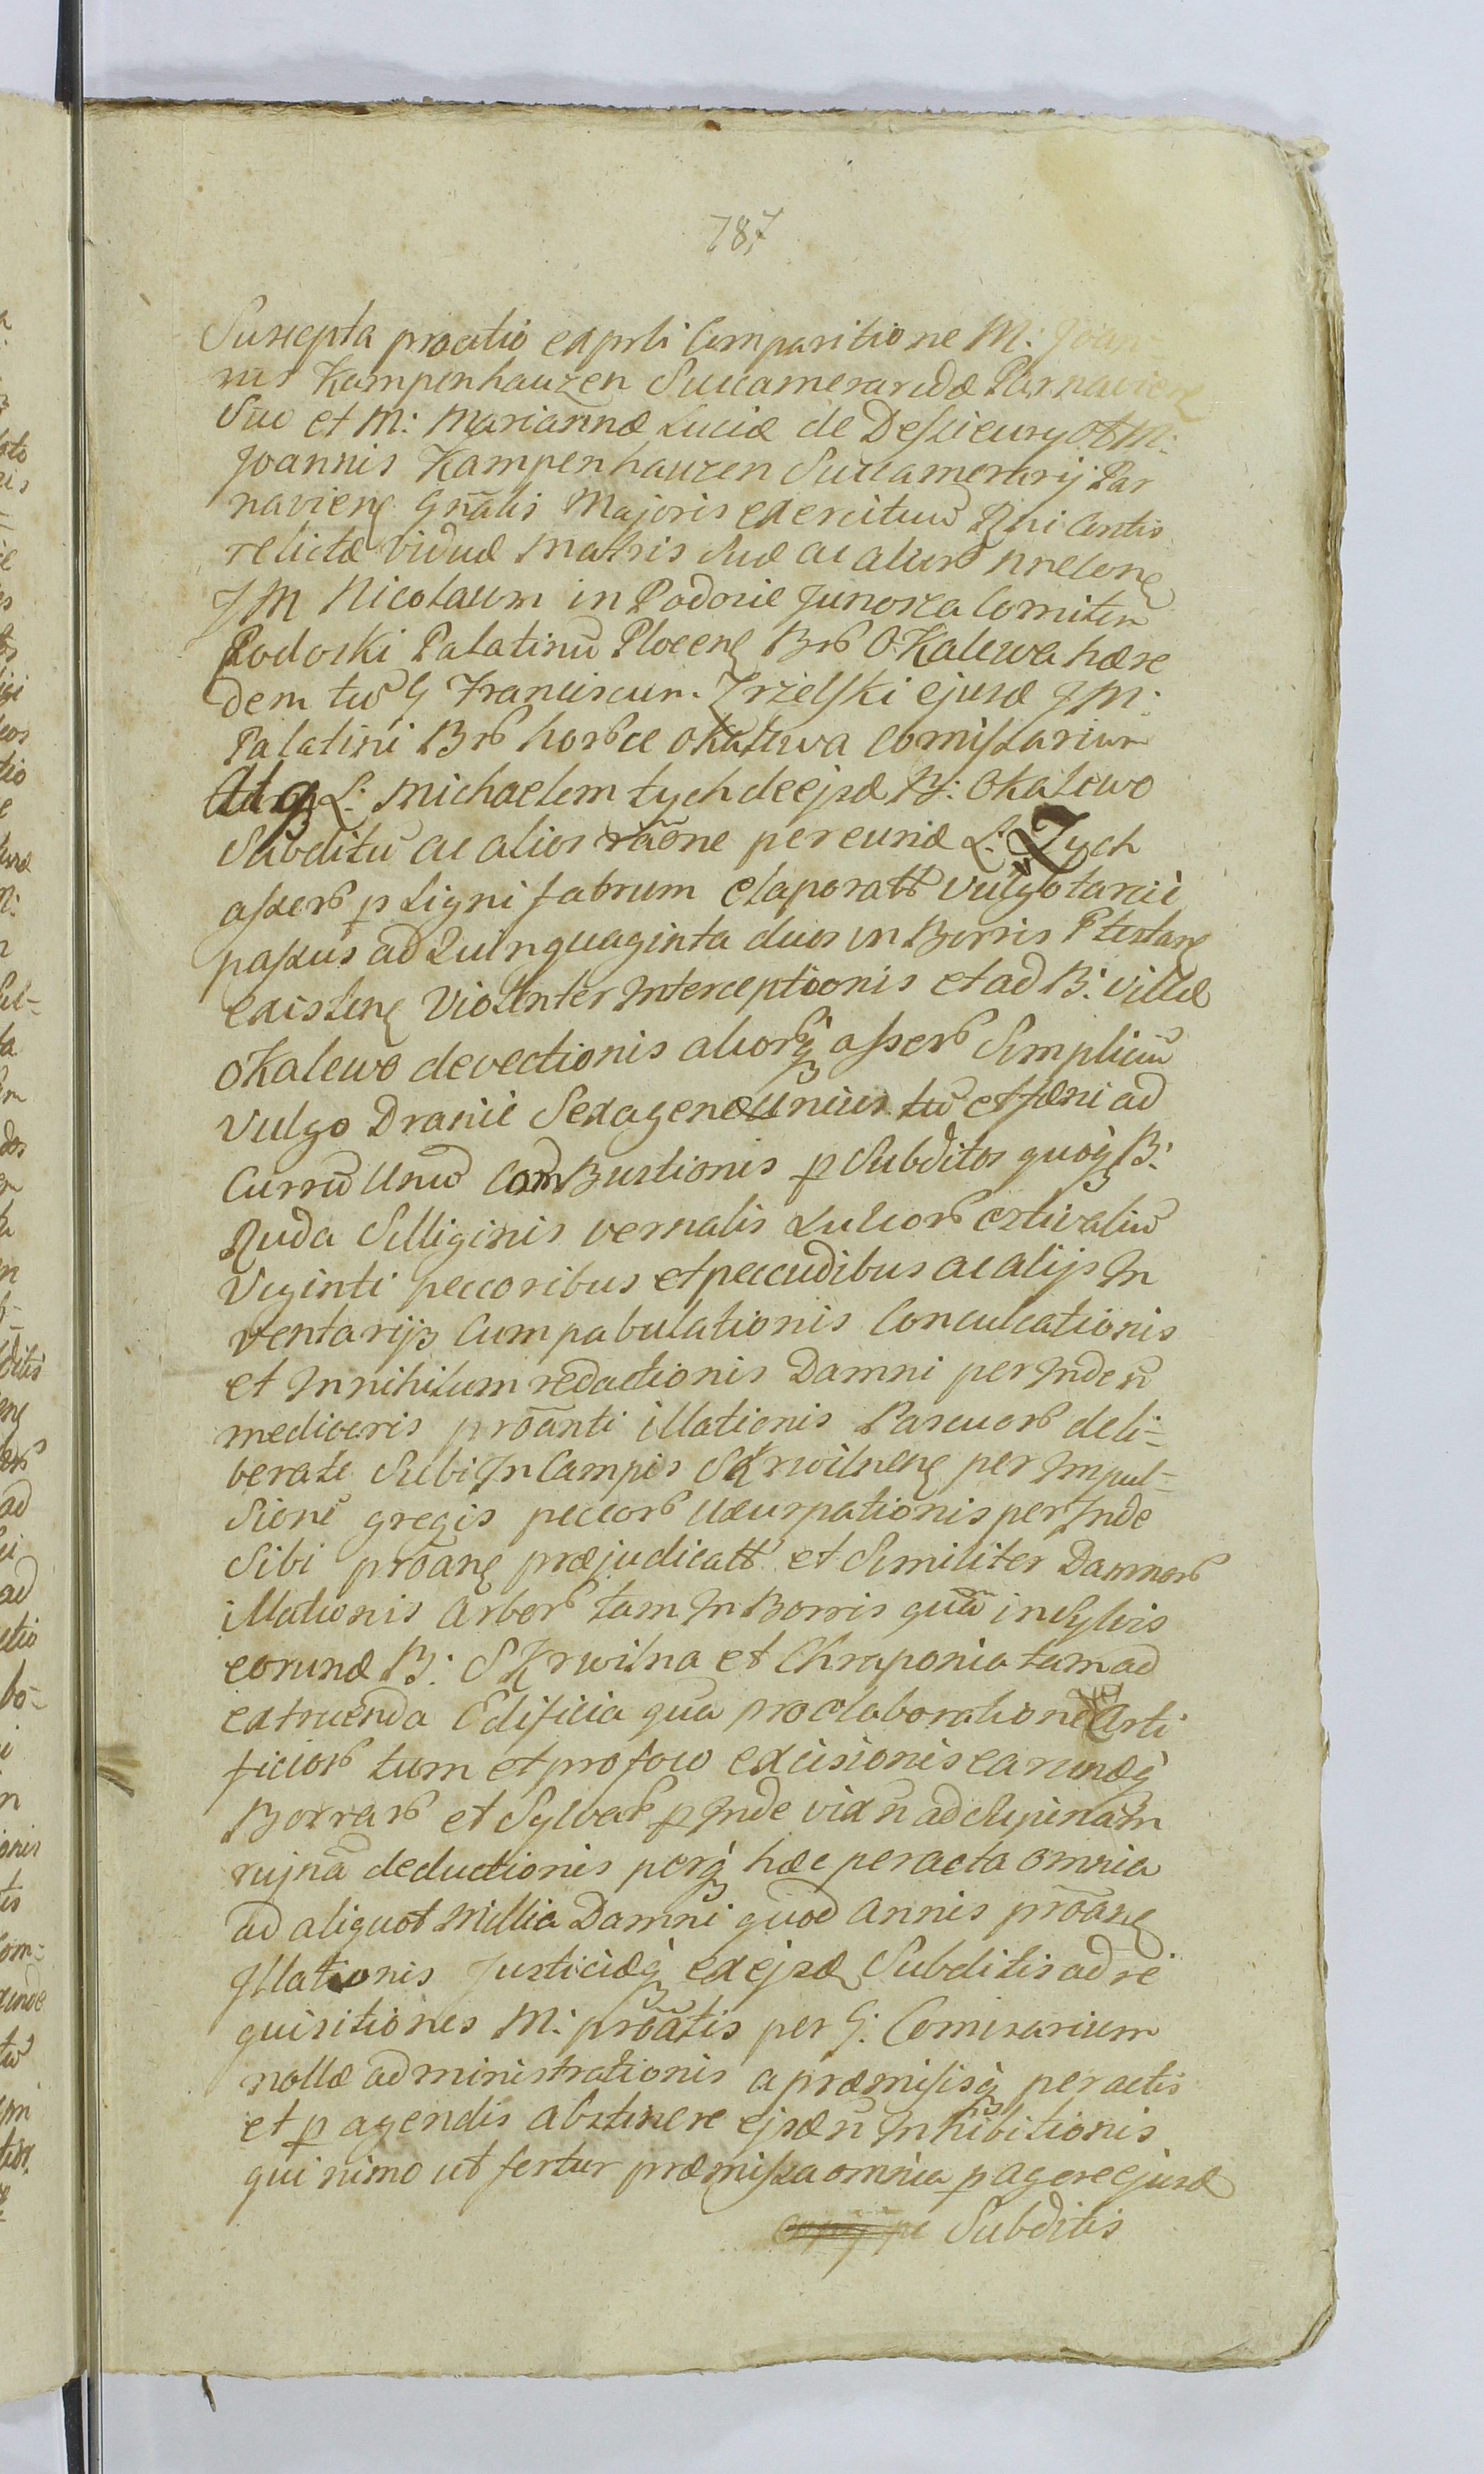 787
Suscepta proãtio ex prsti Comparitione M: Joan-
nis Kampenhauzen Succameraridæ Parnaviens
Suo et M: Mariannæ Luciæ de Desieury Ol: M:
Joannis Kampenhauzen Succamerarij Par
naviens Gnãlis Majoris exercituũ Rni Contis
relictæ viduæ Matris Suæ ac alior
J M Nicolaum in Podosie Junosza Comitem
Podoski Palatinũ Plocens Bro Okalewa hære
dem tũ G Franciscum Trzelski ejusd J M:
Palatini Bro horce Okalewa Comissarium
Adq L: Michaelem tych de ejsd B: Okalewo
Subditũ ac alios rãone per eund L: Tych
asser p Ligni fabrum elaboratt vulgo tarcic
passus ad Quinquaginta duos in Borris Ptestans
existens Violenter Interceptionis et ad B: villæ
Okalewo devectionis aliorq asser Simpliciũ
vulgo Dranic Sexagenæ Unius tũ et fæni ad
Currũ Unũ Combustionis p Subditos quoq B:
Ruda Silliginis vernalis Lulior estivaliũ
Viginti peccoribus et peccudibus ac alijs In
ventarijs Cumpabulationis Conculcationis
et In nihilum redactionis Damni per Inde ñ
mediocris proãnti illationis Pascuor deli-
berate Sibi In Campis Skrwilnens per Impul-
sionẽ gregis peccor Usurpationis per Inde
Sibi proãns præjudicatt et Similiter Damnor
illationis Arbor tam In Borris quã in Sylvis
eorund B: Skrwilna et Chraponia tam ad
extruenda Edificia quã pro elaboratione Arti
ficior tum et pro foco excisionis earundq
Borrar et Sylvar p Inde vix ñ ad supinam
rujnã deductionis perq hæc peracta omnia
ad aliquot Millia Damni quod annis proãns
Illationis Justiciæq ex ejsd Subditis ad re
quisitiones M: proãtis per G: Comisarium
nollæ administrationis a præmisisq peractis
et p agendis abstinere ejsd ñ Inhibitionis
qui nimo ut fertur præmissa omnia p agere ejusd
Subditis